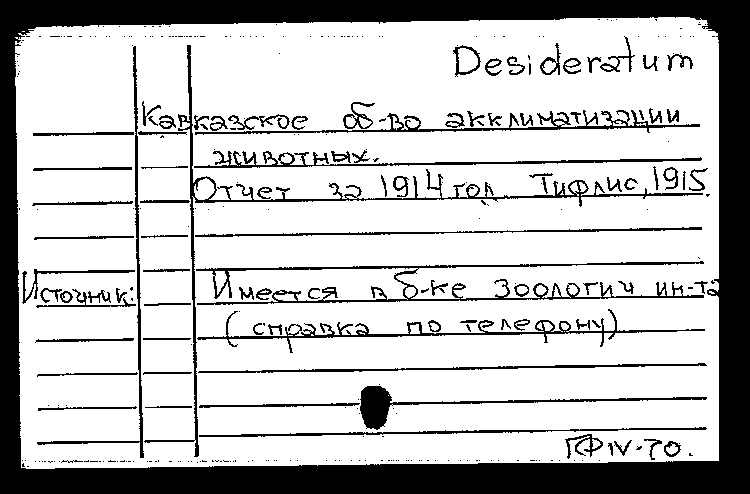 Desideratum
Кавказское об-во акклиматизации
животных.
Отчет за 1914 год. Тифлис, 1915.
Источник: Имеется в б-ке Зоологич ин-та
(справка по телефону)
ГФ IV-70.